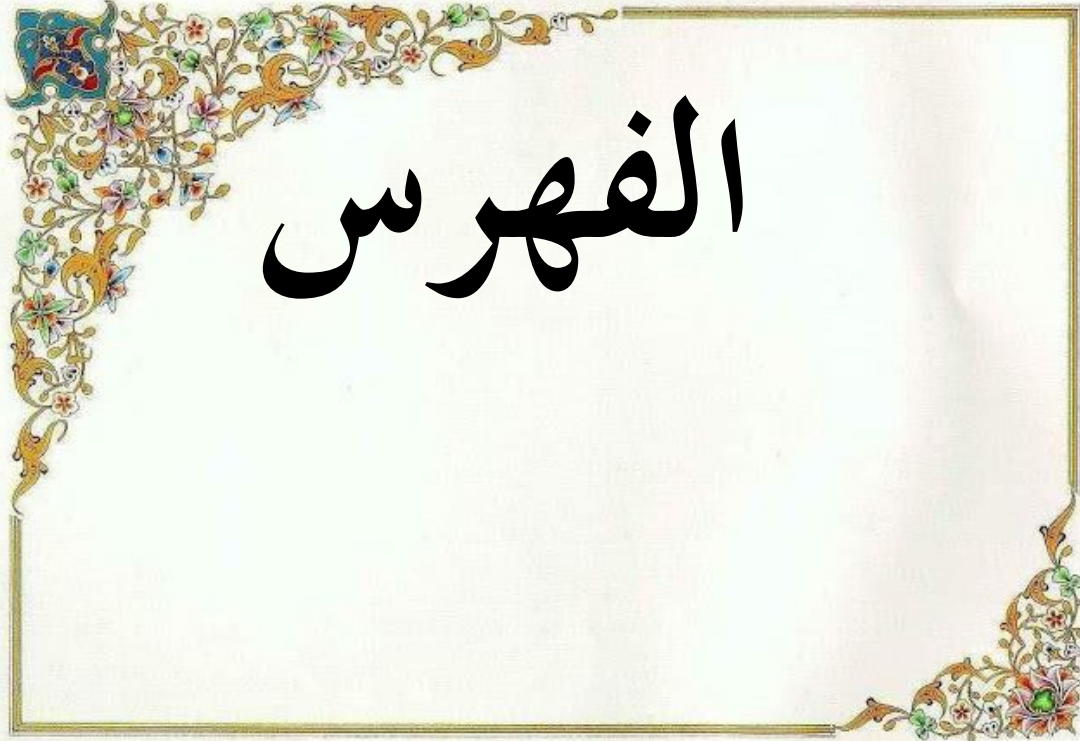 الفهرس